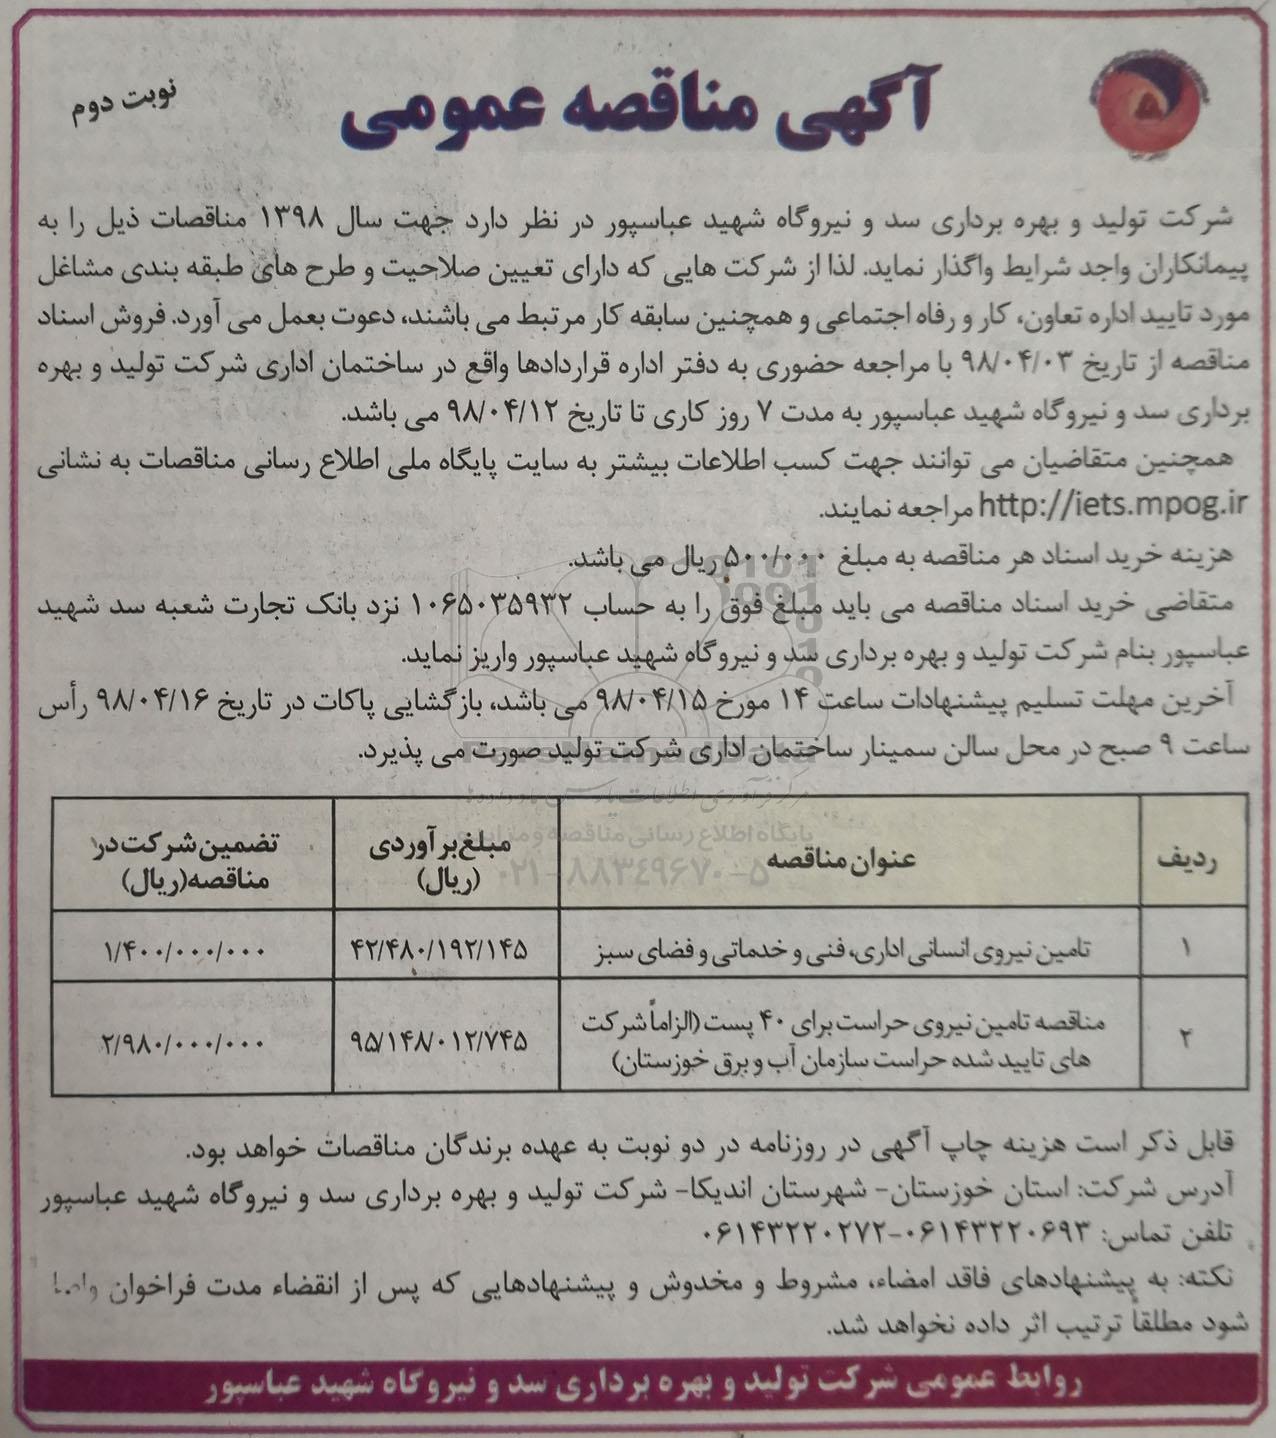 آگهی مناقصه عمومی
نوبت دوم
شرکت تولید و بهره برداری سد و نیروگاه شهید عباسپور در نظر دارد جهت سال ۱۳۹۸ مناقصات ذیل را به
پیمانکاران واجد شرایط واگذار نماید. لذا از شرکت هایی که دارای تعیین صلاحیت و طرح های طبقه بندی مشاغل
مورد تایید اداره تعاون، کار و رفاه اجتماعی و همچنین سابقه کار مرتبط می باشند، دعوت بعمل می آورد. فروش اسناد
مناقصه از تاریخ ۹۸/۰۴/۰۳ با مراجعه حضوری به دفتر اداره قراردادها واقع در ساختمان اداری شرکت تولید و بهره
برداری سد و نیروگاه شهید عباسپور به مدت ۷ روز کاری تا تاریخ ۹۸/۰۴/۱۲ می باشد.
همچنین متقاضیان می توانند جهت کسب اطلاعات بیشتر به سایت پایگاه ملی اطلاع رسانی مناقصات به نشانی
http://iets.mpog.ir مراجعه نمایند.
هزینه خرید اسناد هر مناقصه به مبلغ ۵۰۰/۰۰۰ ریال می باشد.
متقاضی خرید اسناد مناقصه می باید مبلغ فوق را به حساب ۱۰۶۵۰۳۵۹۳۲ نزد بانک تجارت شعبه سد شهید
عباسپور بنام شرکت تولید و بهره برداری سد و نیروگاه شهید عباسپور واریز نماید.
آخرین مهلت تسلیم پیشنهادات ساعت ۱۴ مورخ ۹۸/۰۴/۱۵ می باشد، بازگشایی پاکات در تاریخ ۹۸/۰۴/۱۶ رأس
ساعت ۹ صبح در محل سالن سمینار ساختمان اداری شرکت تولید صورت می پذیرد.
پایگاه اطلاع رسانی مناقصه و مزایده
۰۲۱-۸۸۳۴۹۶۷۰-۵
ردیف عنوان مناقصه مبلغ برآوردی (ریال) تضمین شرکت در مناقصه(ریال)
۱ تامین نیروی انسانی اداری، فنی و خدماتی و فضای سبز ۴۲/۴۸۰/۱۹۲/۱۴۵ ۱/۴۰۰/۰۰۰/۰۰۰
۲ مناقصه تامین نیروی حراست برای ۴۰ پست (الزاماً شرکت
های تایید شده حراست سازمان آب و برق خوزستان) ۹۵/۱۴۸/۰۱۲/۷۴۵ ۲/۹۸۰/۰۰۰/۰۰۰
قابل ذکر است هزینه چاپ آگهی در روزنامه در دو نوبت به عهده برندگان مناقصات خواهد بود.
آدرس شرکت: استان خوزستان- شهرستان اندیکا- شرکت تولید و بهره برداری سد و نیروگاه شهید عباسپور
تلفن تماس: ۰۶۱۴۳۲۲۰۶۹۳-۰۶۱۴۳۲۲۰۲۷۲
نکته: به پیشنهادهای فاقد امضاء، مشروط و مخدوش و پیشنهادهایی که پس از انقضاء مدت فراخوان واصل
شود مطلقاً ترتیب اثر داده نخواهد شد.
روابط عمومی شرکت تولید و بهره برداری سد و نیروگاه شهید عباسپور